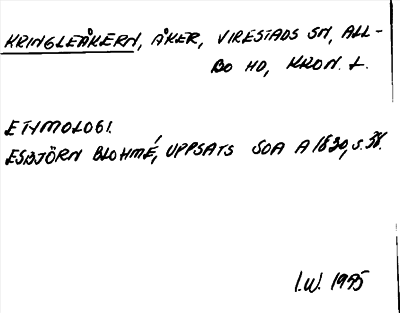 KRINGLEÅKERN, ÅKER, VIRESTADS SN, ALL-
BO HD, KRON. L.
ETYMOLOGI.
ESBJÖRN BLOHMÉ, UPPSATS SOA A 1830, s. 38.
I.W. 1975